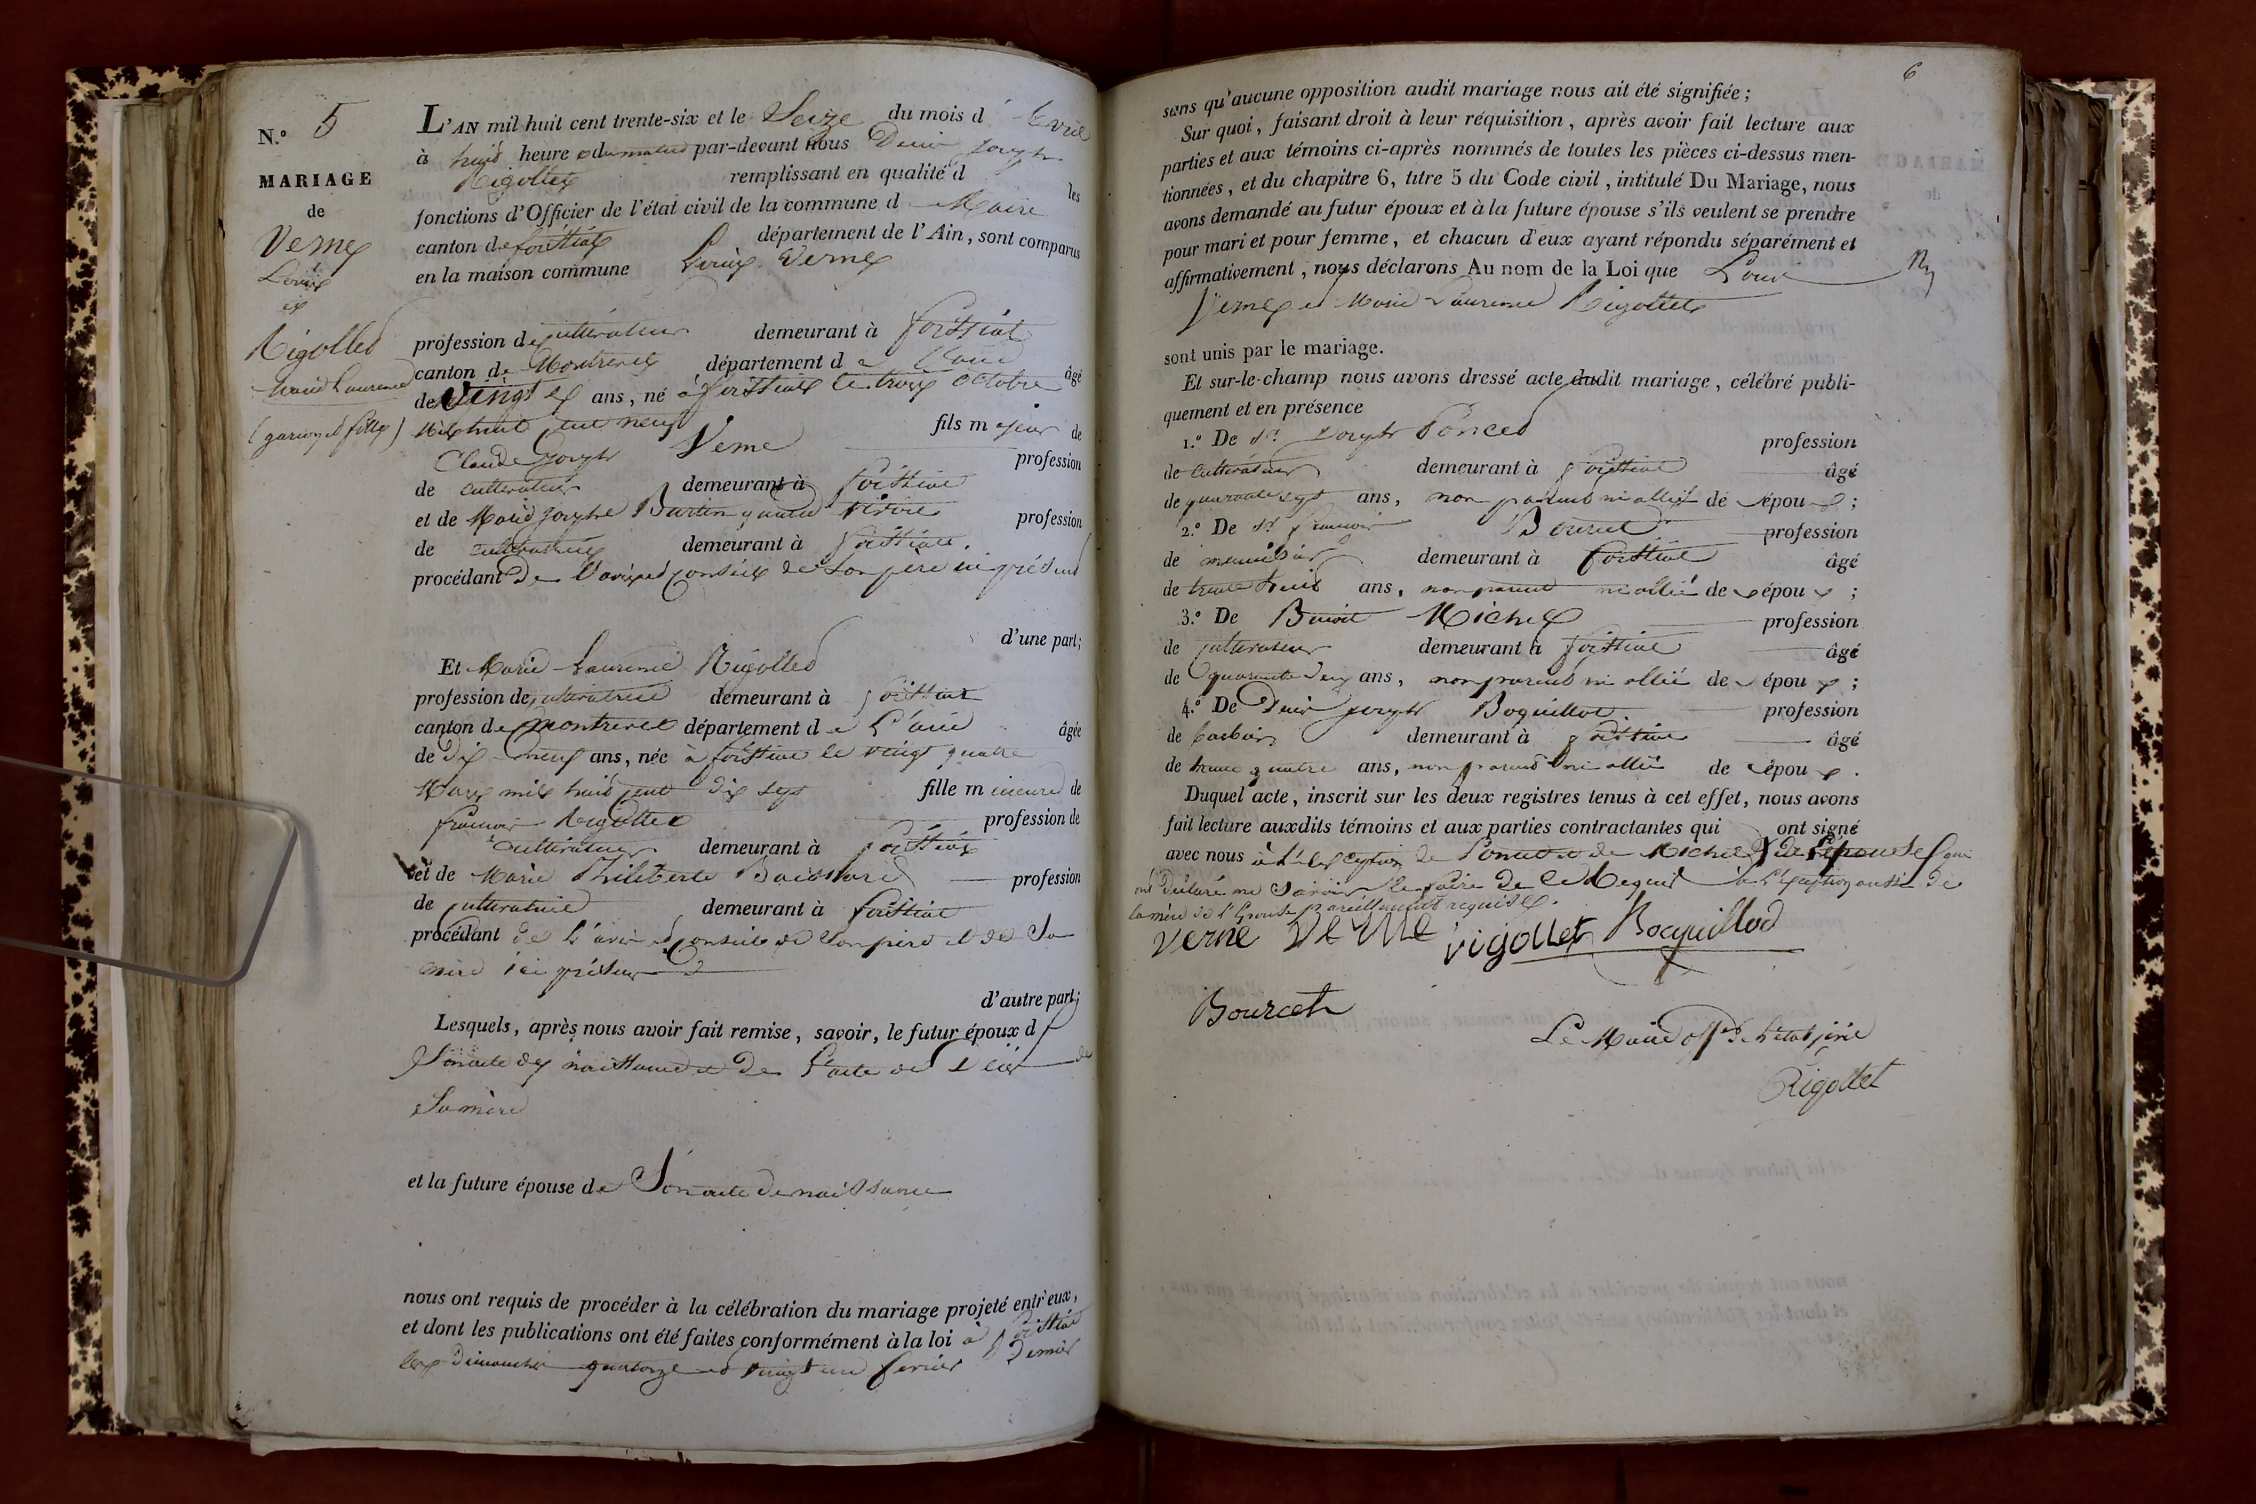 N.º 5
MARIAGE
de
Verne
Louis
et
Rigollet
Marie Laurence
(garçon et fille)
L'AN mil huit cent trente-six et le Seize du mois d'Avril
à huit heure du matin par-devant nous Denis Joseph
Rigollet remplissant en qualité d les
fonctions d'Officier de l'état civil de la commune d Maire
canton de foissiat département de l'Ain, sont comparus
en la maison commune Louis Verne
profession de cultivateur demeurant à foissiat
canton de Montrevel département de l'ain âgé
de vingt six ans, né à foissiat le trois octobre
Mil huit cent neuf fils majeur de
Claude Joseph Verne profession
de cultivateur demeurant à foissiat
et de Marie Josephe Burtin quand vivoit profession
de cultivatrice demeurant à foissiat.
procédant De l'avis et conseil de son père ici présent
d'une part;
Et Marie Laurence Rigollet
profession de cultivatrice demeurant à foissiat
canton de montrevel département de L'ain âgée
de Dix neuf ans, née à foissiat le vingt quatre
Mars mil huit cent dix sept fille mineure de
françois Rigollet profession de
cultivateur demeurant à foissiat
et de Marie Philiberte profession
de cultivatrice demeurant à foissiat
procédant de L'avis et conseil de son père et de Sa
mère ici présens
d'autre part;
Lesquels, après nous avoir fait remise, savoir, le futur époux d
Son acte de naissance et De l'acte de Décès de
Sa mère
et la future épouse de Son acte de naissance
nous ont requis de procéder à la célébration du mariage projeté entr'eux,
et dont les publications ont été faites conformément à la loi à foissiat
les Dimanches quatorze et vingt un fevrier Dernier
6
sans qu'aucune opposition audit mariage nous ait été signifiée;
Sur quoi, faisant droit à leur réquisition, après avoir fait lecture aux
parties et aux témoins ci-après nommés de toutes les pièces ci-dessus men-
tionnées, et du chapitre 6, titre 5 du Code civil, intitulé Du Mariage, nous
avons demandé au futur époux et à la future épouse s'ils veulent se prendre
pour mari et pour femme, et chacun d'eux ayant répondu séparément et
affirmativement, nous déclarons Au nom de la Loi que Louis
Verne et Marie Laurence Rigollet
sont unis par le mariage.
Et sur-le-champ nous avons dressé acte dudit mariage, célébré publi-
quement et en présence
1.º De Sr Joseph Poncet profession
de cultivateur demeurant à foissiat âgé
de quarante sept ans, non parent ni allié de époux;
2.º De Sr françois Bourcet profession
de menuisier demeurant à foissiat âgé
de trente huit ans, non parent ni allié de époux;
3.º De Benoit Michel profession
de cultivateur demeurant à foissiat âgé
de quarante deux ans, non parent ni allié de époux;
4.º De Denis joseph Boquillod profession
de demeurant à foissiat âgé
de trente quatre ans, non parent ni allié de époux.
Duquel acte, inscrit sur les deux registres tenus à cet effet, nous avons
fait lecture auxdits témoins et aux parties contractantes qui ont signé
avec nous à L'exception de Poncet et de Michel et de l'épouse qui
ont déclaré ne savoir le faire De ce Requis à l'exception aussi de
la mère de l'Epouse pareillement requise.
verne Verne rigollet Bocquillod
Bourcet
Le Maire offer de l'état civil
Rigollet